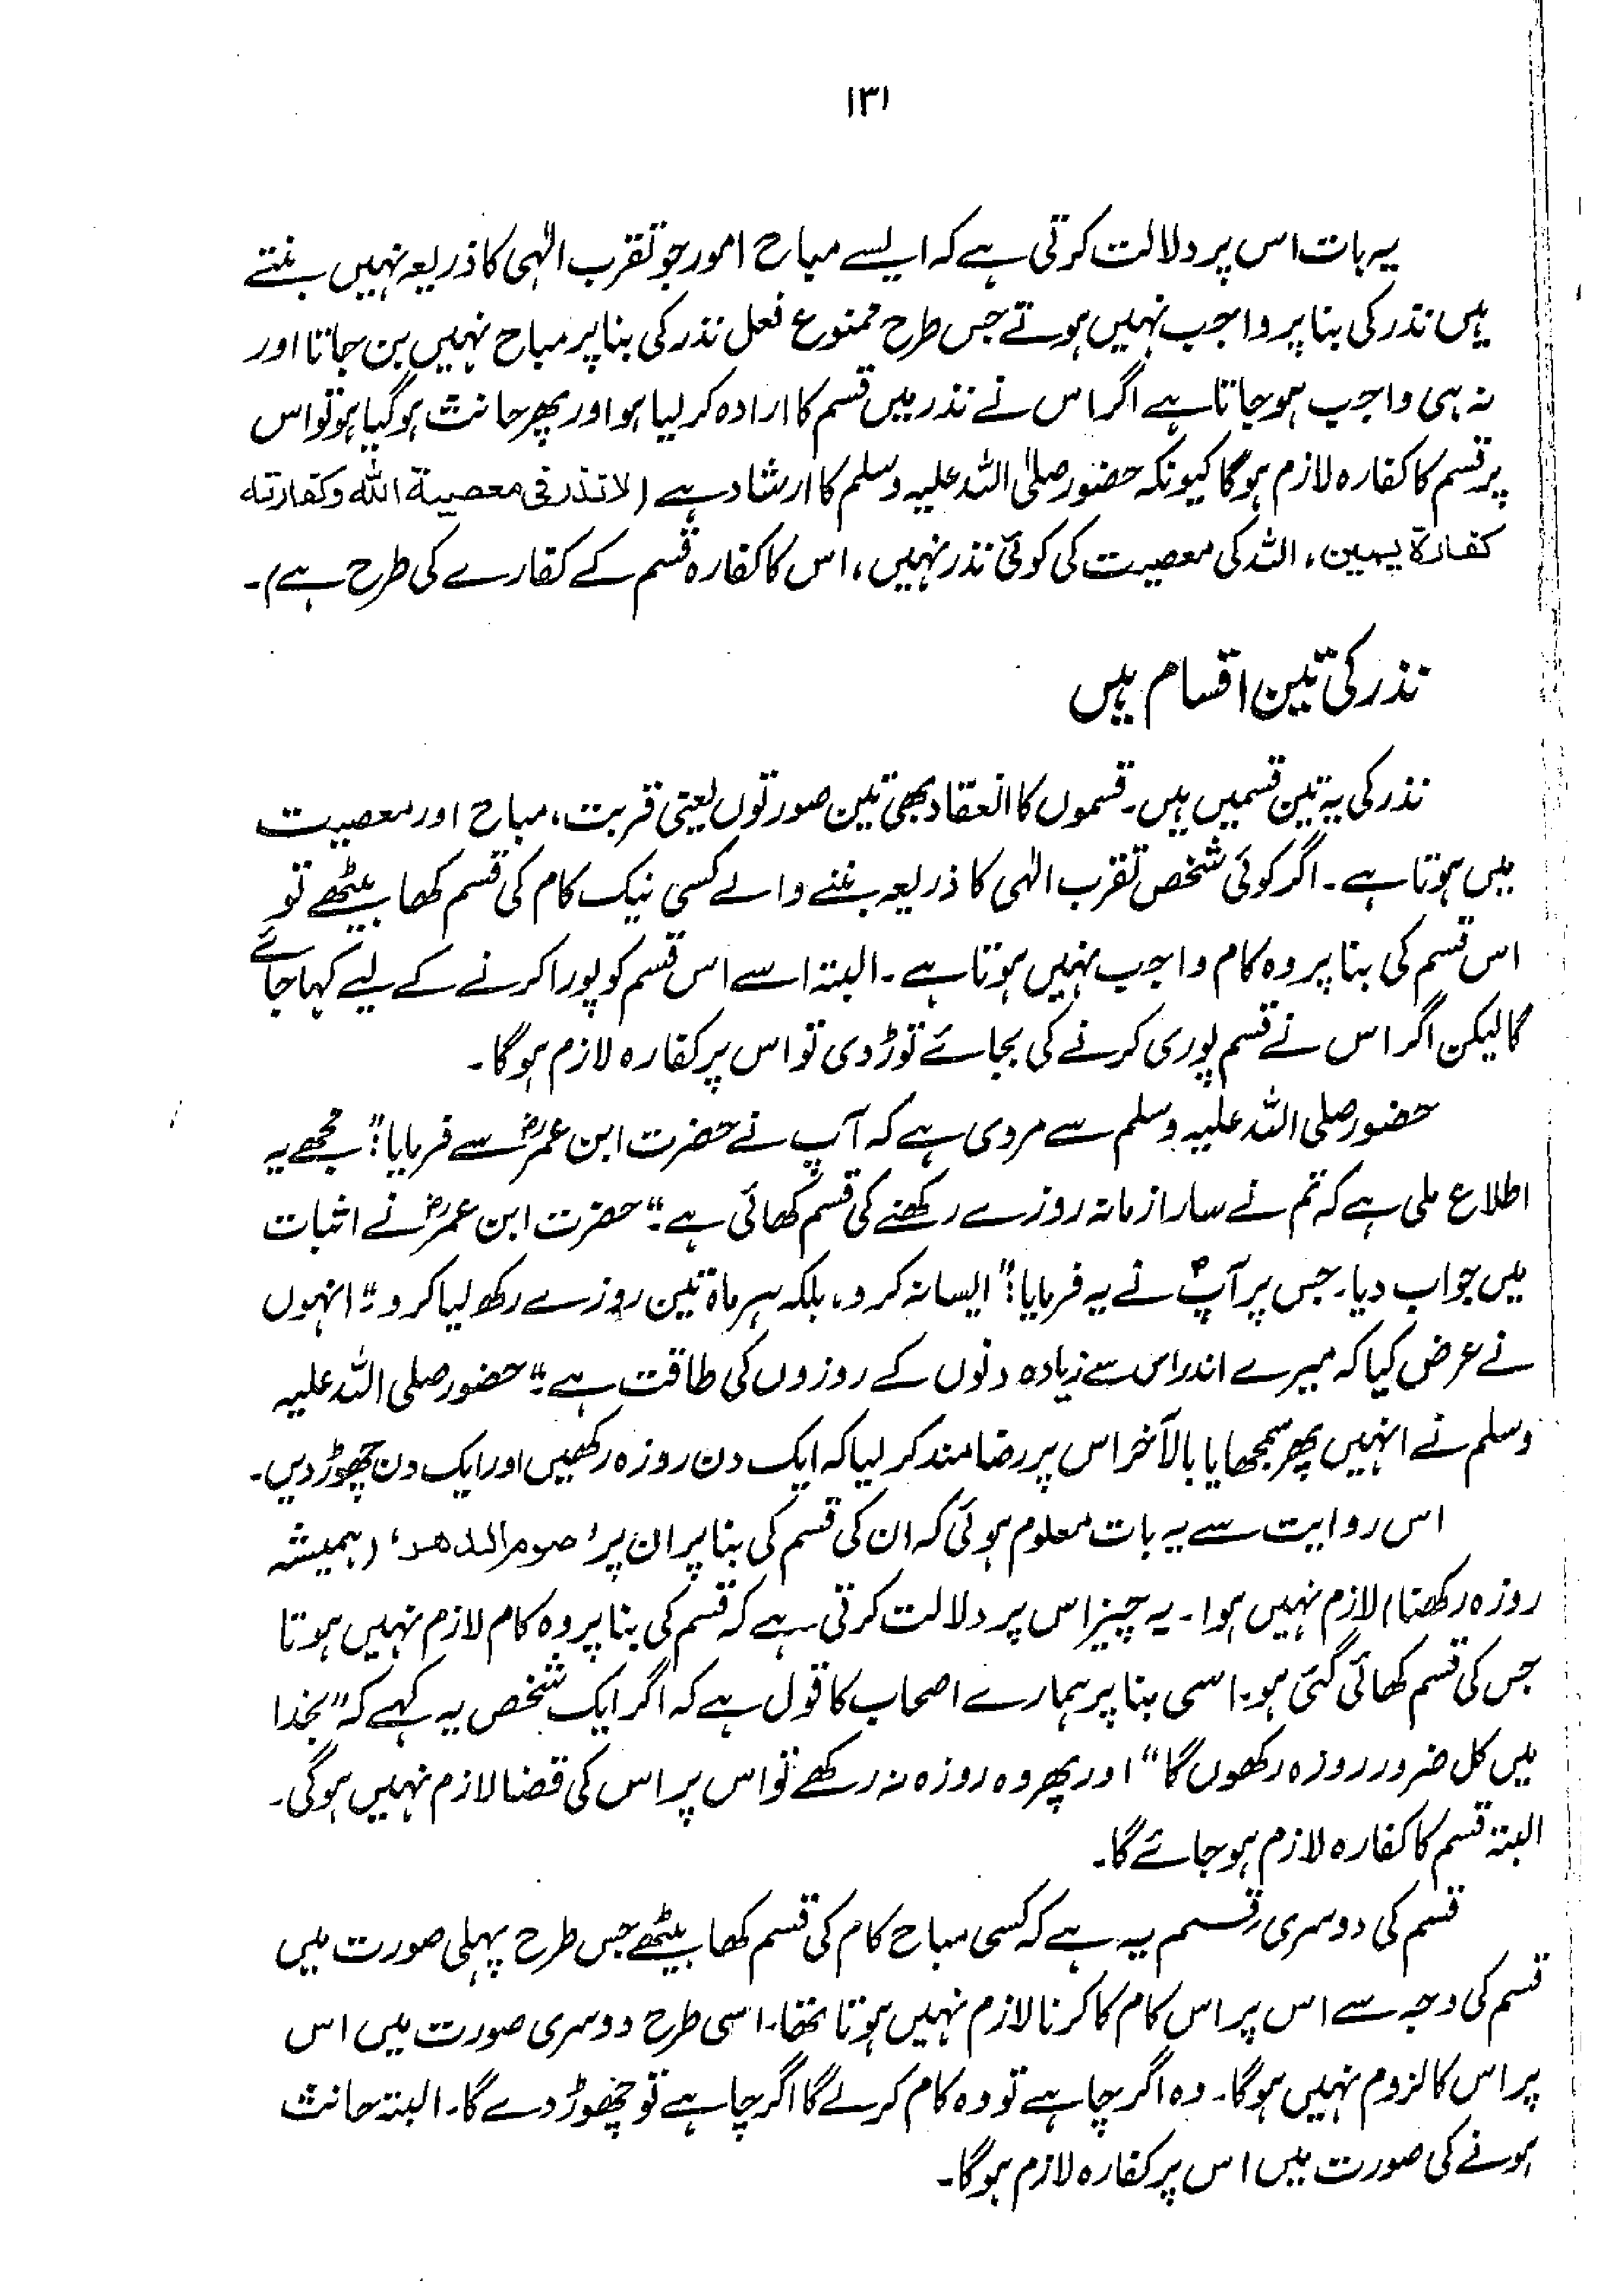 ۱۳۱
یہ بات اس پر دلالت کرتی ہے کہ ایسے مباح امور جو تقرب الٰہی کا ذریعہ نہیں بنتے
ہیں نذر کی بنا پر واجب نہیں ہوتے جس طرح ممنوع فعل نذر کی بنا پر مباح نہیں بن جاتا اور
نہ ہی واجب ہو جاتا ہے اگر اس نے نذر میں قسم کا ارادہ کر لیا ہو اور پھر حانث ہو گیا ہو تو اس
پر قسم کا کفارہ لازم ہوگا کیونکہ حضور صلی اللہ علیہ وسلم کا ارشاد ہے (لا نذر فی معصیۃ اللہ وکفارتہ
کفارۃ یمین، اللہ کی معصیت کی کوئی نذر نہیں، اس کا کفارہ قسم کے کفارے کی طرح ہے)۔
نذر کی تین اقسام ہیں
نذر کی یہ تین قسمیں ہیں۔ قسموں کا انعقاد بھی تین صورتوں یعنی قربت، مباح اور معصیت
میں ہوتا ہے۔ اگر کوئی شخص تقرب الٰہی کا ذریعہ بننے والے کسی نیک کام کی قسم کھا بیٹھے تو
اس قسم کی بنا پر وہ کام واجب نہیں ہوتا ہے۔ البتہ اسے اس قسم کو پورا کرنے کے لیے کہا جائے
گا لیکن اگر اس نے قسم پوری کرنے کی بجائے توڑ دی تو اس پر کفارہ لازم ہوگا۔
حضور صلی اللہ علیہ وسلم سے مروی ہے کہ آپ نے حضرت ابن عمرؓ سے فرمایا: "مجھے یہ
اطلاع ملی ہے کہ تم نے سارا زمانہ روزے رکھنے کی قسم کھائی ہے۔" حضرت ابن عمرؓ نے اثبات
میں جواب دیا۔ جس پر آپؐ نے یہ فرمایا: "ایسا نہ کرو، بلکہ ہر ماہ تین روزے رکھ لیا کرو۔" انہوں
نے عرض کیا کہ میرے اندر اس سے زیادہ دنوں کے روزوں کی طاقت ہے۔" حضور صلی اللہ علیہ
وسلم نے انہیں پھر سمجھایا بالآخر اس پر رضامند کر لیا کہ ایک دن روزہ رکھیں اور ایک دن چھوڑ دیں۔
اس روایت سے یہ بات معلوم ہوئی کہ ان کی قسم کی بنا پر ان پر 'صوم الدھر' (ہمیشہ
روزہ رکھنا) لازم نہیں ہوا۔ یہ چیز اس پر دلالت کرتی ہے کہ قسم کی بنا پر وہ کام لازم نہیں ہوتا
جس کی قسم کھائی گئی ہو۔ اسی بنا پر ہمارے اصحاب کا قول ہے کہ اگر ایک شخص یہ کہے کہ "بخدا
میں کل ضرور روزہ رکھوں گا" اور پھر وہ روزہ نہ رکھے تو اس پر اس کی قضا لازم نہیں ہوگی۔
البتہ قسم کا کفارہ لازم ہو جائے گا۔
قسم کی دوسری قسم یہ ہے کہ کسی مباح کام کی قسم کھا بیٹھے جس طرح پہلی صورت میں
قسم کی وجہ سے اس پر اس کام کا کرنا لازم نہیں ہوتا تھا۔ اسی طرح دوسری صورت میں اس
پر اس کا لزوم نہیں ہوگا۔ وہ اگر چاہے تو وہ کام کر لے گا اگر چاہے تو چھوڑ دے گا۔ البتہ حانث
ہونے کی صورت میں اس پر کفارہ لازم ہوگا۔